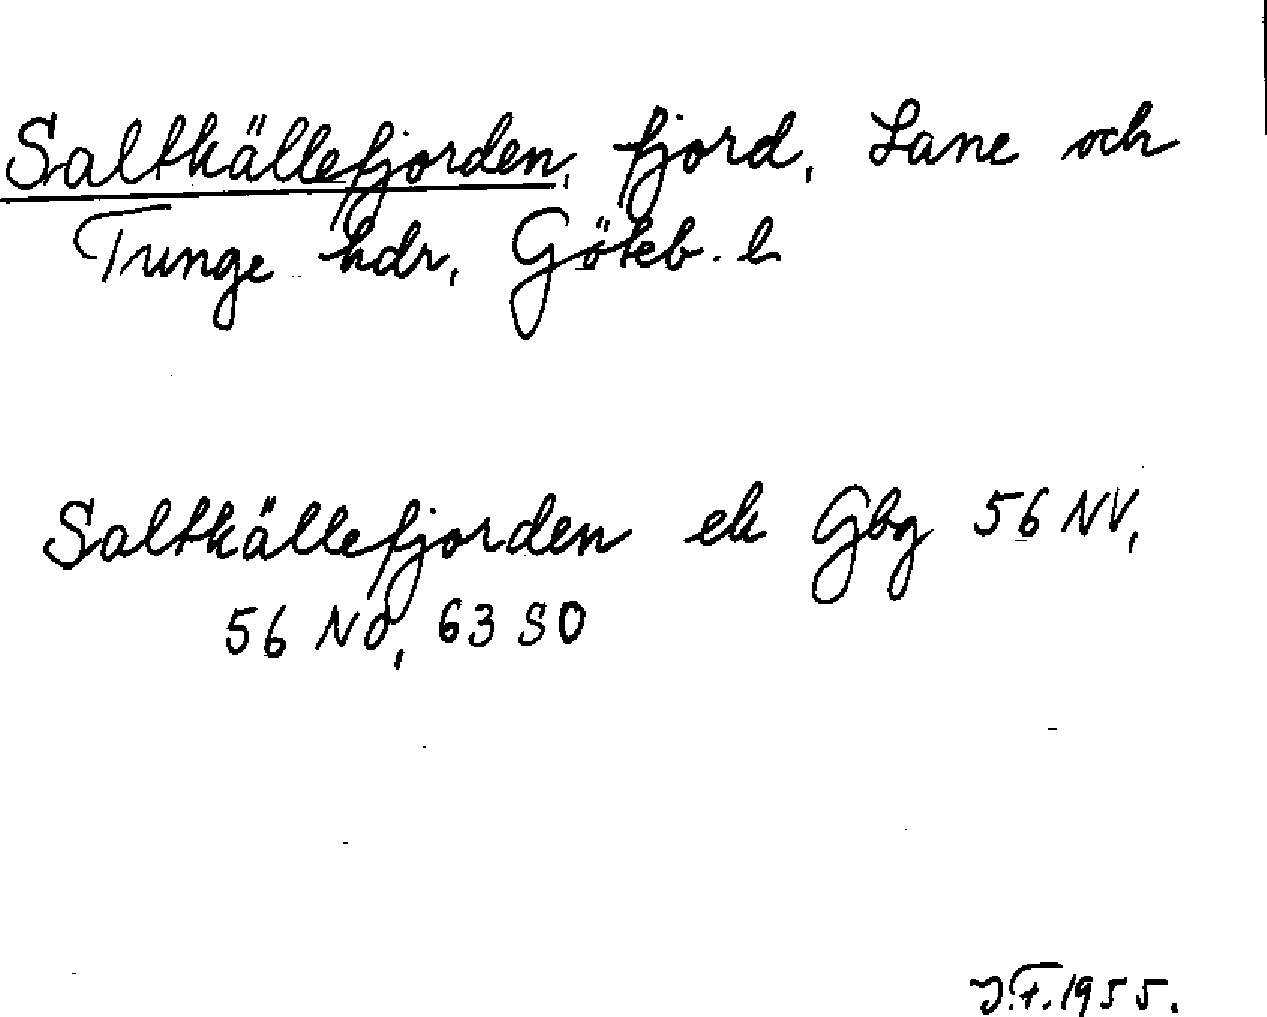 Saltkällefjorden, fjord, Lane och
Tunge hdr, Göteb. l
Saltkällefjorden ek Gbg 56 NV,
56 NO, 63 SO
J.F. 1955.